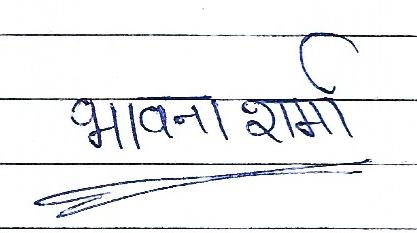 भावना शर्मा